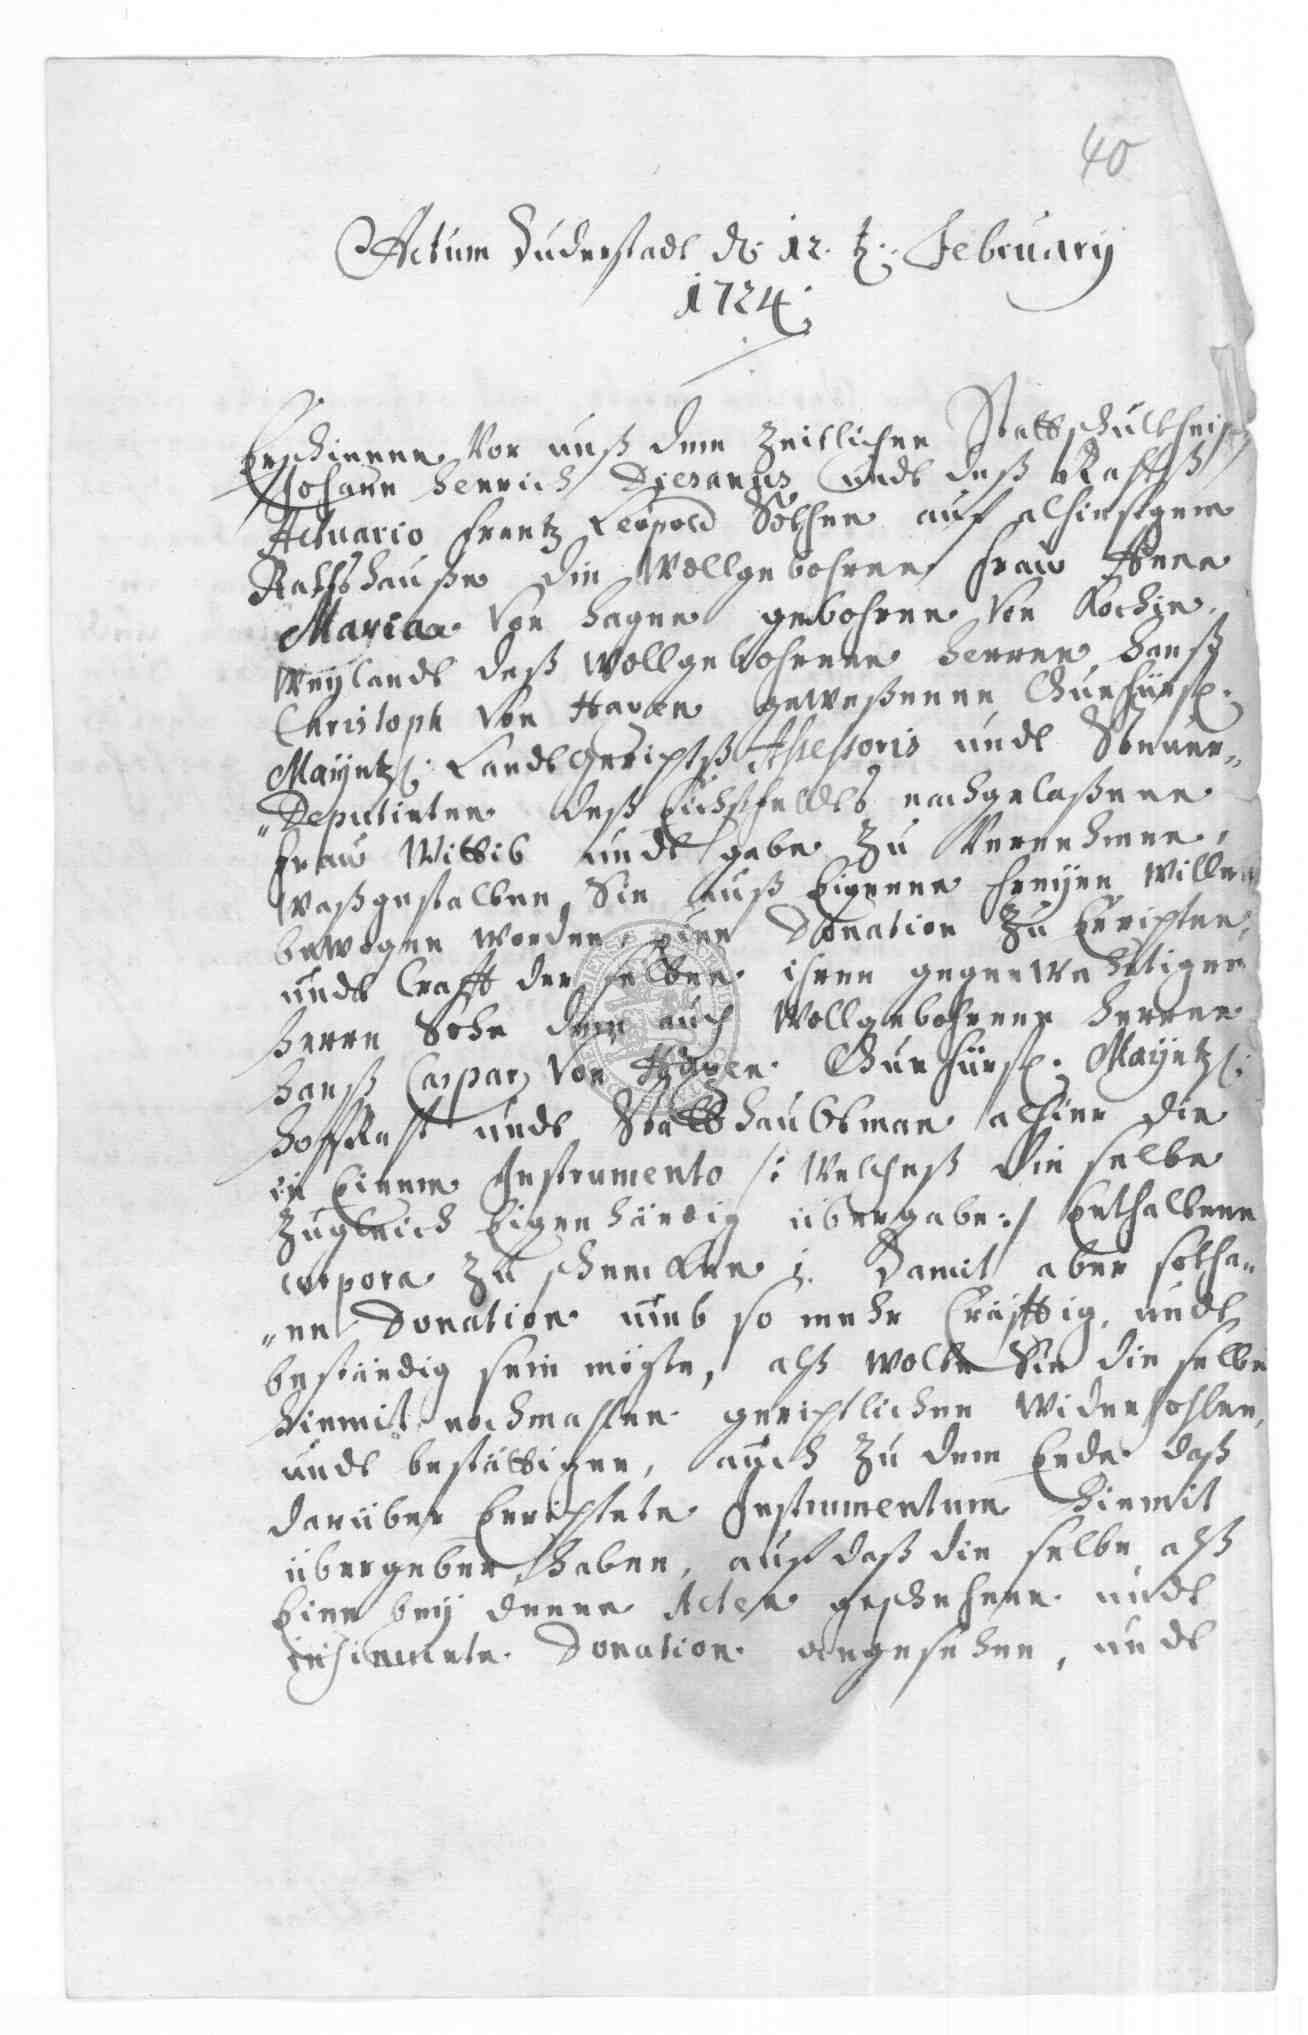 40
Actum Duderstadt d. 12. t. February
1724.
Erschienen Vor unß dem Zeitlichen Stattschultheiß
Johann Henrich undt deß Rahtß
Actuario Frantz Leopold Söthen auf alhiesigem
Rathshauße die Wollgebohrne Frau Anna
Maria Von Hagen gebohrne Von Kochin
Weylandt deß Wollgebohrnen Herren Hanß
Christoph Von Hagen geweßenen Churfürstl.
Mayntzl. Landtgerichtß Assessoris undt Steuer„
„Deputirten deß Eichßfeldts nachgelaßene
Frau Wittib undt gabe zu Vernehmen,
waßgestalten Sie auß Eigenen freyen Willen
bewogen worden, eine Donation zu Errichten,
undt Crafft der selben ihren gegenwertigen
Herrn Sohn dem auch Wollgebohrnen Herren
Hanß Caspar Von Hagen Churfürstl. Mayntzl.
HoffRaht undt Statthaubtman alhier die
in Einem Instrumento /: Welcheß die selbe
Zugleich Eigenhändig übergabe :/ Enthaltene
corpora zu schencken ; Damit aber sotha„
„ne Donation umb so mehr Cräfftig, undt
beständig sein mögte, alß wolte Sie die selbe
hiemit nochmahlen gerichtlichen Widerhohlen,
undt bestättigen, auch zu dem Ende daß
darüber Errichtete Instrumentum hiemit
übergeben haben, auf daß die selbe alß
Eine bey denen Acten geschehene undt
insinuirte Donation angesehen, undt